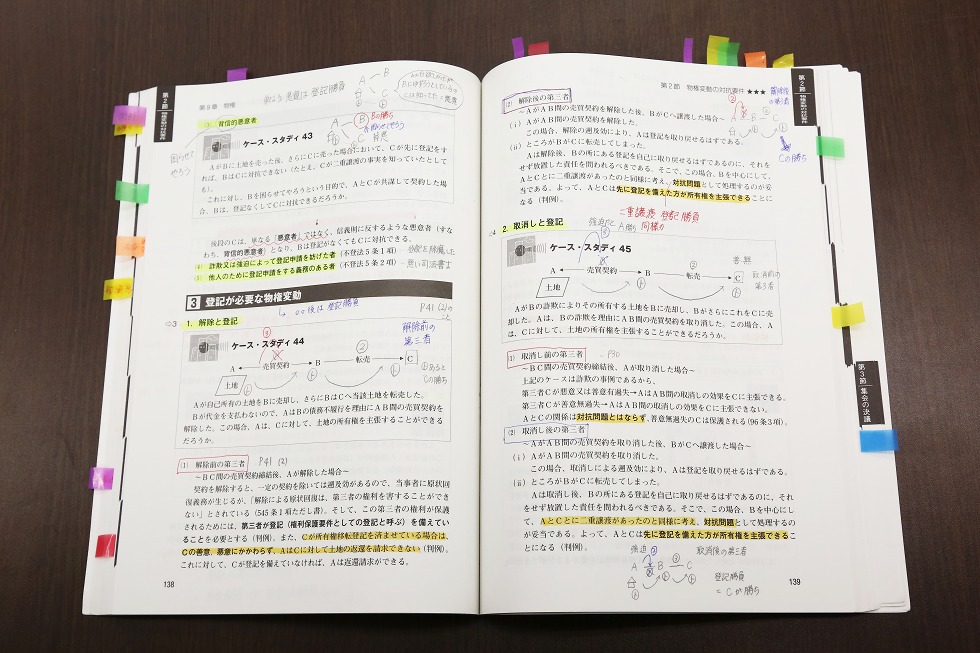 第9章 物権
第2節
物権変動の対抗要件
背信的悪意者
ケース・スタディ 43
AがBに土地を売った後、さらにCに売った場合において、Cが先に登記をす
れば、BはCに対抗できない（たとえ、Cが二重譲渡の事実を知っていたとして
も）。
これに対し、Bを困らせてやろうという目的で、AとCが共謀して契約した場
合、Bは、登記なくしてCに対抗できるだろうか。
後段のCは、単なる「悪意者」ではなく、信義則に反するような悪意者（すな
わち、背信的悪意者）となり、Bは登記がなくてもCに対抗できる。
詐欺又は強迫によって登記申請を妨げた者（不登法5条1項）
他人のために登記申請をする義務のある者（不登法5条2項）
3 登記が必要な物権変動
○○後は登記勝負
P41 (2)の
⇨3 1. 解除と登記
ケース・スタディ 44
解除前の
第三者
A 売買契約 B 転売 C
土地
Cの勝ち
Aが自己所有の土地をBに売却し、さらにBはCへ当該土地を転売した。
Bが代金を支払わないので、AはBの債務不履行を理由にAB間の売買契約を
解除した。この場合、Aは、Cに対して、土地の所有権を主張することができる
だろうか。
(1) 解除前の第三者 P41 (2)
～BC間の売買契約締結後、Aが解除した場合～
契約を解除すると、一定の契約を除いては遡及効があるので、当事者に原状回
復義務が生じるが、「解除による原状回復は、第三者の権利を害することができ
ない」とされている（545条1項ただし書）。そして、この第三者の権利が保護
されるためには、第三者が登記（権利保護要件としての登記と呼ぶ）を備えてい
ることを必要とする（判例）。また、Cが所有権移転登記を済ませている場合は、
Cの善意、悪意にかかわらず、AはCに対して土地の返還を請求できない（判例）。
これに対して、Cが登記を備えていなければ、Aは返還請求ができる。
138
第2節 物権変動の対抗要件 ★★★
解除後
の第三者
第2節
物権変動の対抗要件
(2) 解除後の第三者
～AがAB間の売買契約を解除した後、BがCへ譲渡した場合～
(ⅰ) AがAB間の売買契約を解除した。
この場合、解除の遡及効により、Aは登記を取り戻せるはずである。
(ⅱ) ところがBがCに転売してしまった。
Cの勝ち
Aは解除後、Bの所にある登記を自己に取り戻せるはずであるのに、それを
せず放置した責任を問われるべきである。そこで、この場合、Bを中心にして、
AとCとに二重譲渡があったのと同様に考え、対抗問題として処理するのが妥
当である。よって、AとCとは先に登記を備えた方が所有権を主張できることに
なる（判例）。
二重譲渡 登記勝負
同様
2. 取消しと登記
ケース・スタディ 45
善無
A 売買契約 B 転売 C
取消前の
第3者
土地
AがBの詐欺によりその所有する土地をBに売却し、BがさらにこれをCに売
却した。Aは、Bの詐欺を理由にAB間の売買契約を取り消した。この場合、A
は、Cに対して、土地の所有権を主張することができるだろうか。
(1) 取消し前の第三者 P30
～BC間の売買契約締結後、Aが取消した場合～
上記のケースは詐欺の事例であるから、
第三者Cが悪意又は善意有過失→AはAB間の取消しの効果をCに主張できる。
第三者Cが善意無過失→AはAB間の取消しの効果をCに主張できない。
AとCの関係は対抗問題とはならず、善意無過失のCは保護される(96条3項)。
(2) 取消し後の第三者
～AがAB間の売買契約を取り消した後、BがCへ譲渡した場合～
(ⅰ) AがAB間の売買契約を取り消した。
この場合、取消しによる遡及効により、Aは登記を取り戻せるはずである。
(ⅱ) ところがBがCに転売してしまった。
Aは取消し後、Bの所にある登記を自己に取り戻せるはずであるのに、それ
をせず放置した責任を問われるべきである。そこで、この場合、Bを中心にし
て、AとCとに二重譲渡があったのと同様に考え、対抗問題として処理するの
が妥当である。よって、AとCとは先に登記を備えた方が所有権を主張できるこ
とになる（判例）。
強迫 取消後の第三者
A B C
登記勝負
= Cが勝ち
139
第3節
集会の決議